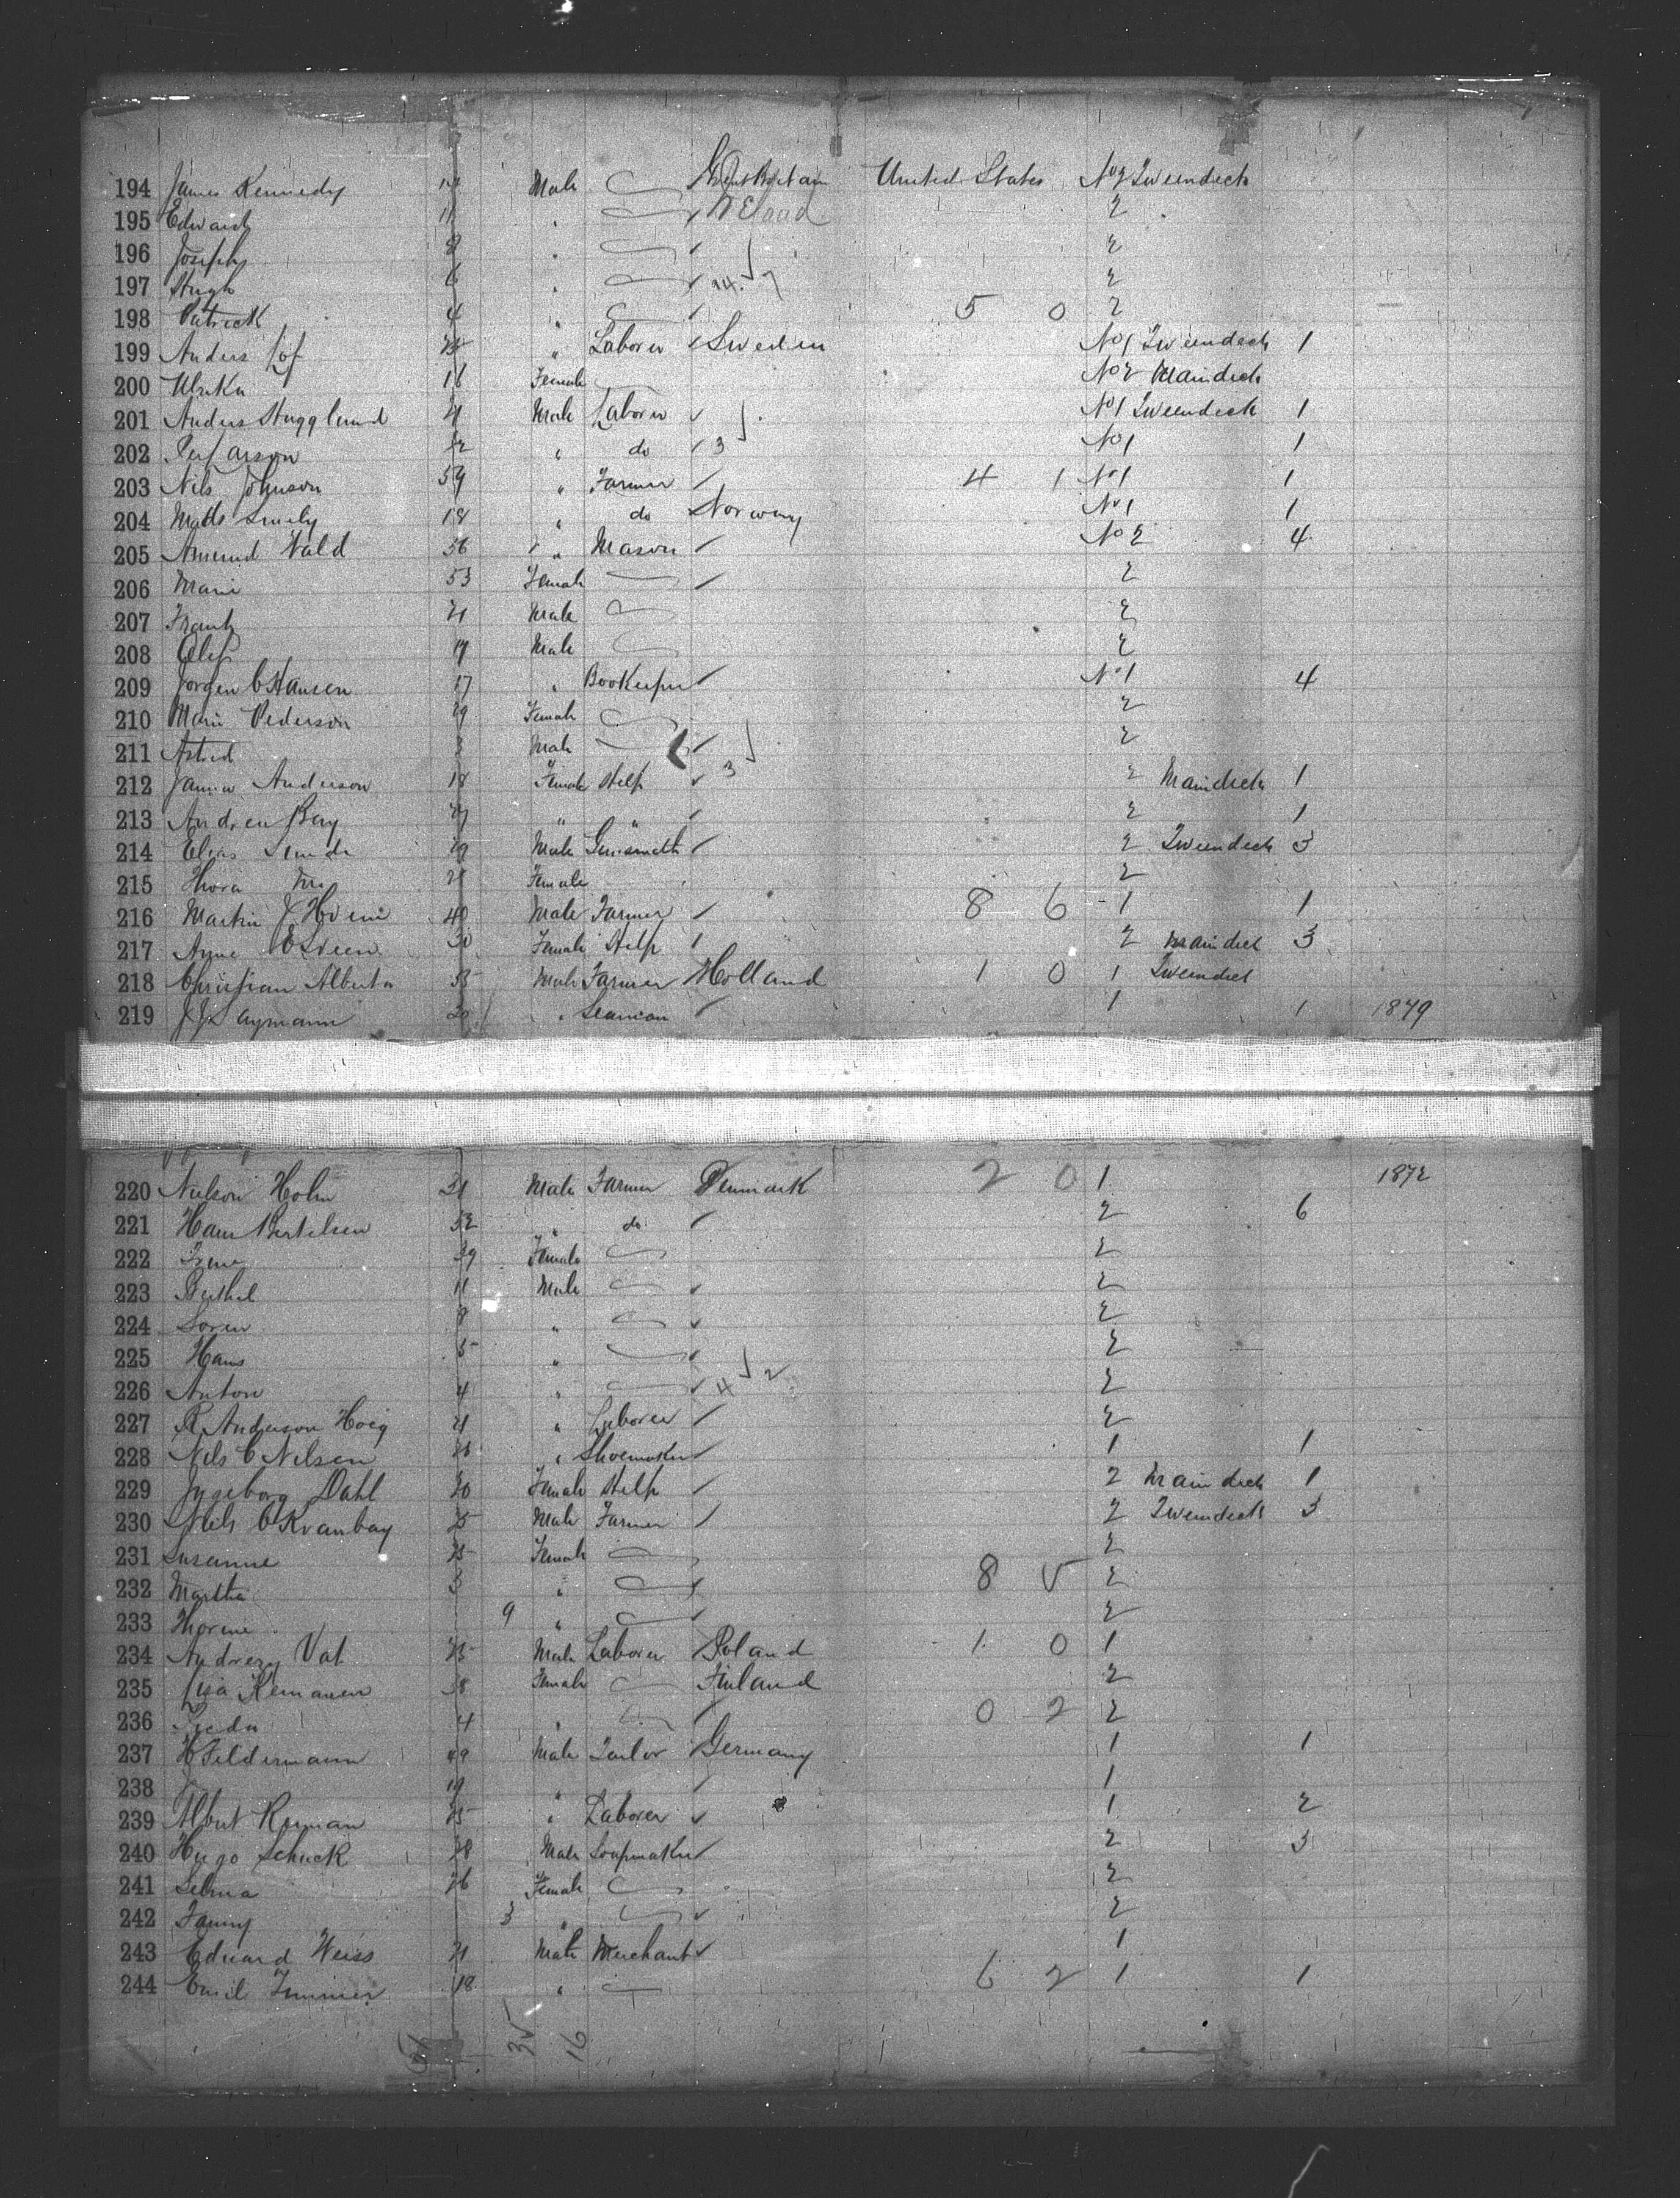 194 James Kennedy Male Great Britain United States No 2 Tweendeck
195 Edward 11 " 2
196 Joseph 8 " 2
197 Hugh 6 " 2
198 Patrick 4 " 5 0 2
199 Anders Löf " Laborer Sweden No 1 Tweendeck 1
200 Ulrika 16 Female No 2 Maindeck
201 Anders Hagglund 21 Male Laborer No 1 Tweendeck 1
202 Per Larson " do 3 No 1 1
203 Nils Johnson 59 " Farmer 4 1 No 1 1
204 Matts 18 " do Norway No 1 1
205 Amund Vald 56 " Mason No 2 4
206 Marie 53 Female 2
207 Frank 21 Male 2
208 Olef 19 Male 2
209 Jorgen C Hansen 17 " Bookeeper No 1 4
210 Marie Pederson 29 Female 2
211 Astrid 3 Male 2
212 Anderson 18 Female Help 3 2 Maindeck 1
213 Berg 27 " " 2 1
214 Elias 29 Male Gunsmith 2 Tweendeck 3
215 Thora 21 Female 2
216 Martin J 40 Male Farmer 8 6 1 1
217 Anne 30 Female Help 2 Maindeck 3
218 Christian Alberta 35 Male Farmer Holland 1 0 1 Tweendeck
219 " Seaman 1 1 1879
220 Nielson Holm 31 Male Farmer Denmark 2 0 1 1872
221 Hans Bertelsen 52 " do 2 6
222 39 Female 2
223 Berthel 11 Male 2
224 Soren 8 " 2
225 Hans 5 " 2
226 Anton 4 " 4 2 2
227 R Anderson Hoeg 21 " Laborer 2
228 Nils C Nilsen 26 " Shoemaker 1 1
229 Ingeborg Dahl 20 Female Help 2 Maindeck 1
230 Niels C Kvanbay 25 Male Farmer 2 Tweendeck 3
231 Susanne 25 Female 2
232 Martha 3 " 8 5 2
233 9 " 2
234 Andrezy Vat 25 Male Laborer Poland 1 0 1
235 Lisa 38 Female Finland 2
236 4 " 0 2 2
237 H Feldermann 49 Male Tailor Germany 1 1
238 19 " 1
239 Albert 25 " Laborer 1 2
240 Hugo Schuck 28 Male Soapmaker 2 3
241 Selma 26 Female 2
242 Fanny 3 " 2
243 Eduard Weiss 21 Male Merchant 1
244 Emil 18 " 6 2 1 1
35 16